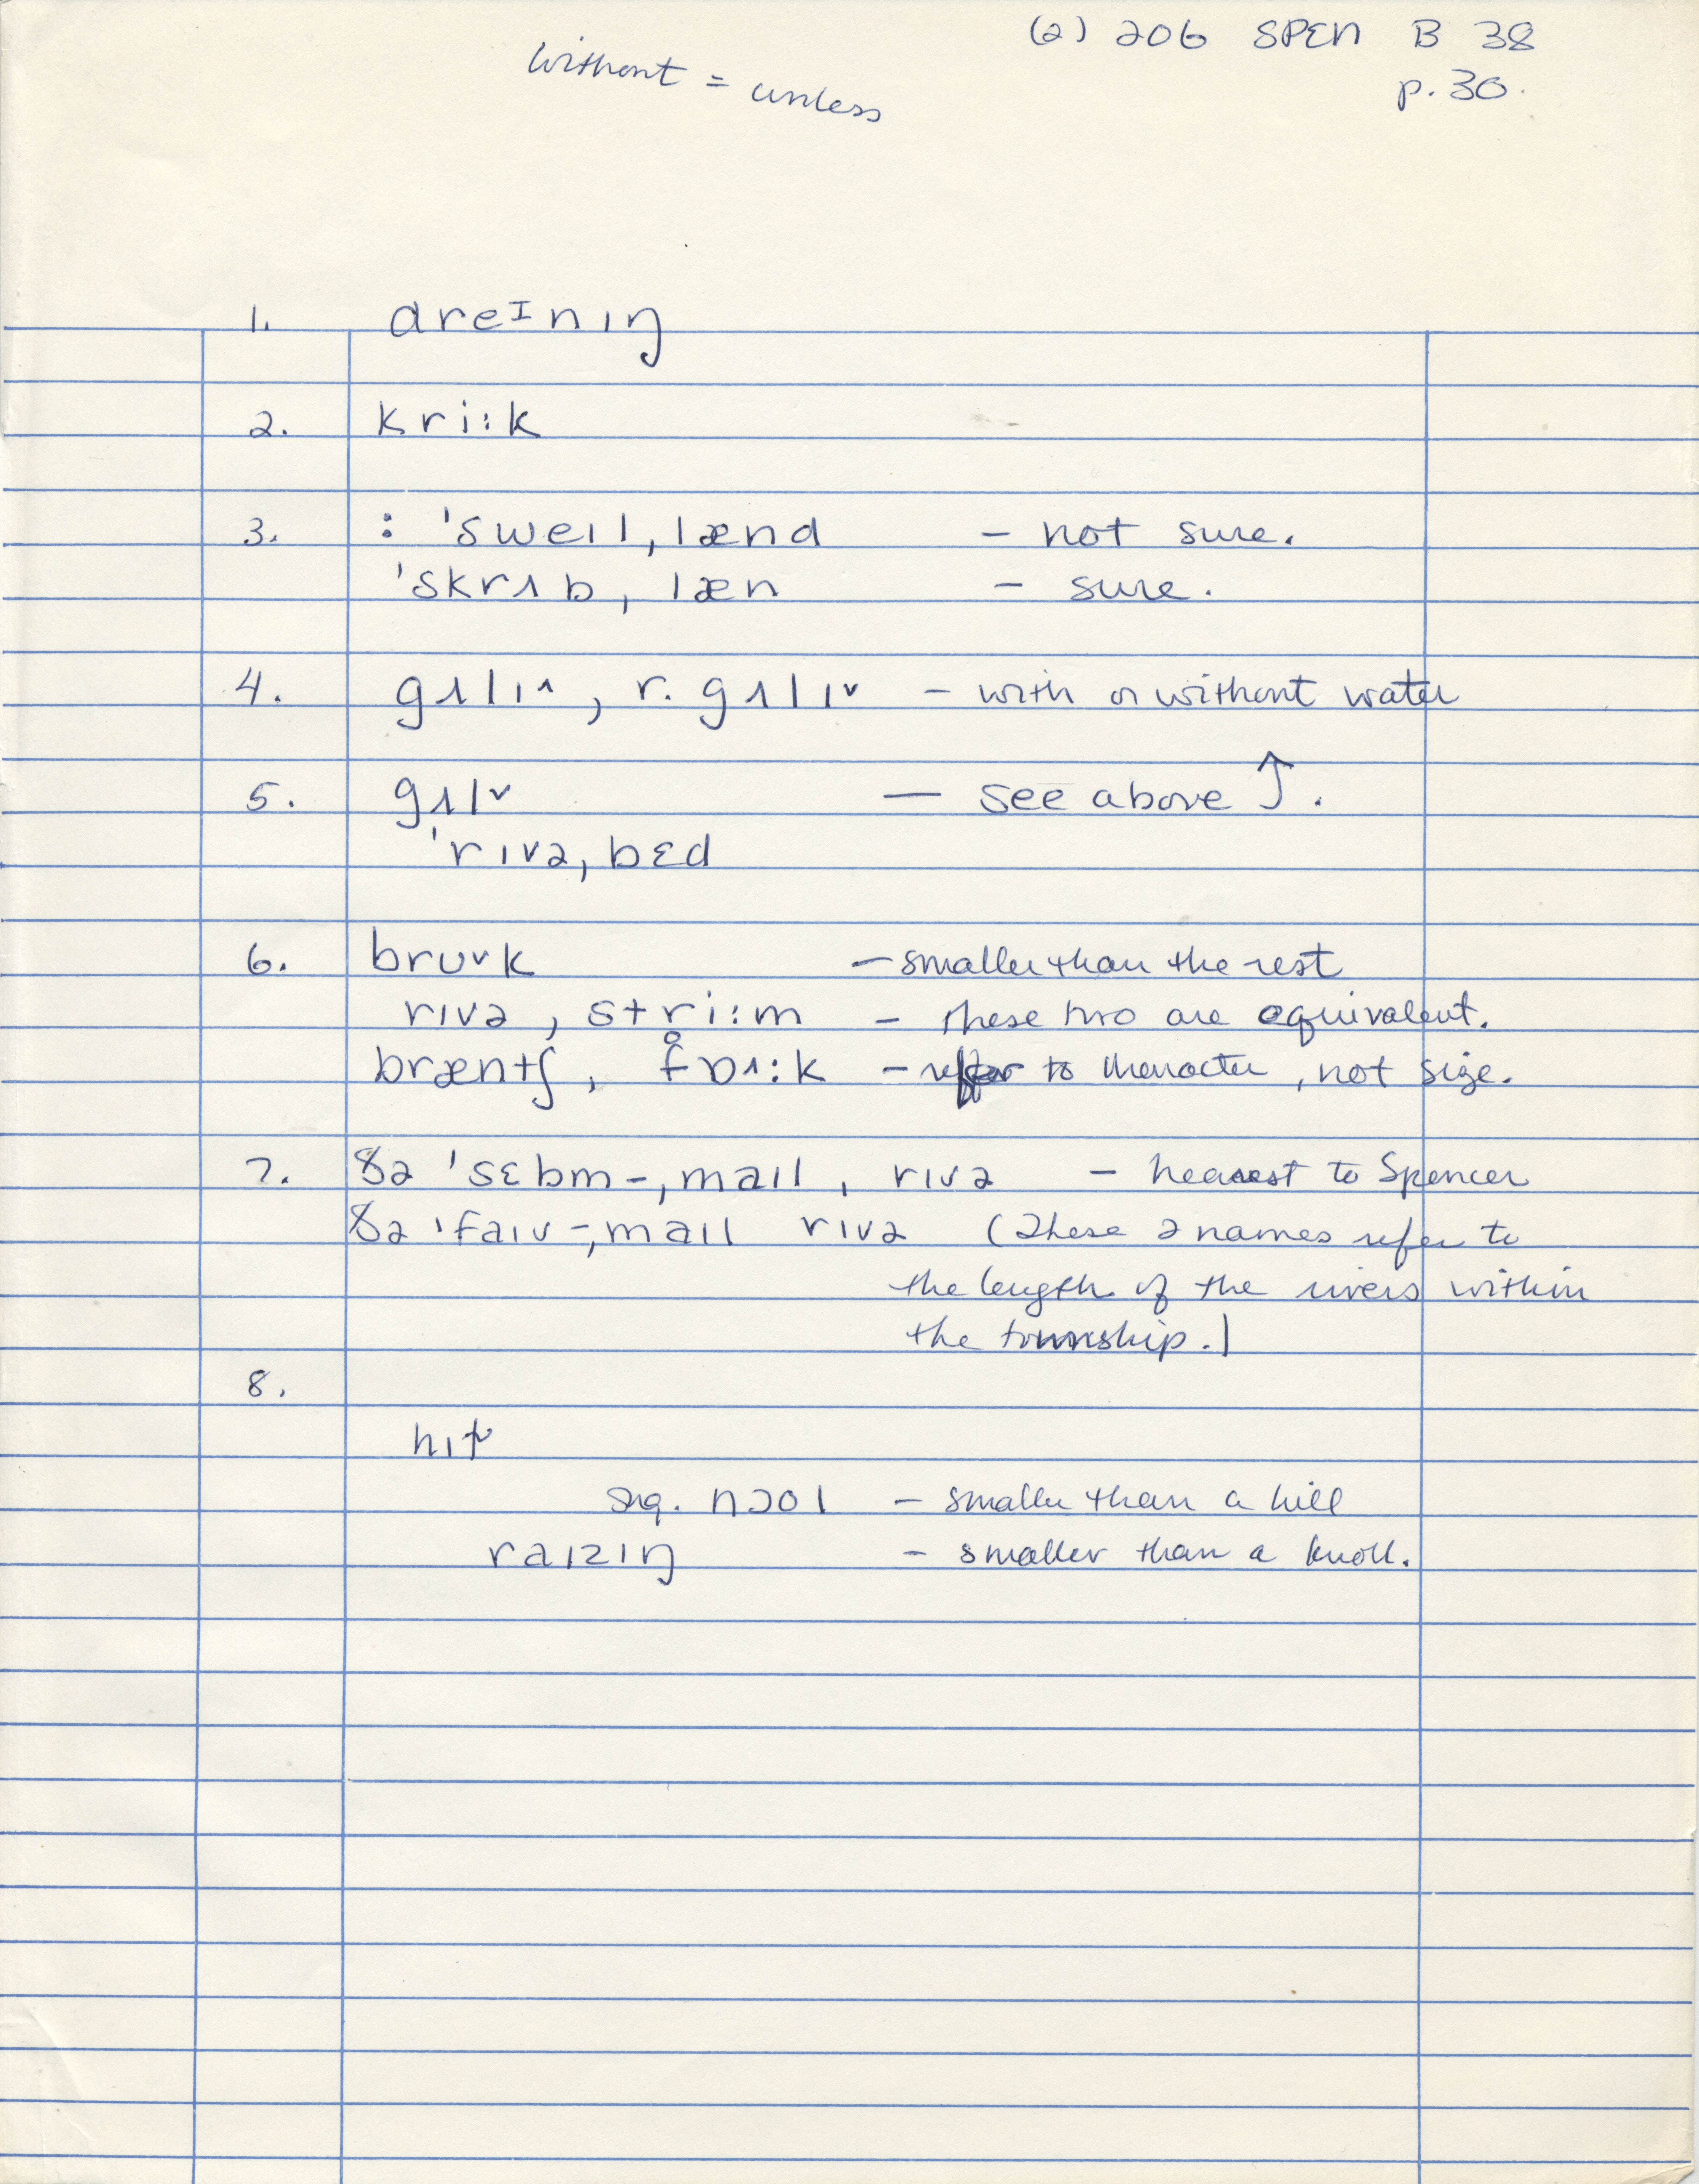 (2) 206 SPEN B 38
without = unless
p. 30.
1. dreɪnɪŋ
2. kri:k
3. : 'sweɪl,lænd - not sure.
'skrʌb,læn - sure.
4. gʌlɪ^, r. gʌlɪ˅ - with or without water
5. gʌl˅ — see above ↑.
'rɪvə,bɛd
6. brʊ˅k - smaller than the rest
rɪvə, stri:m - these two are equivalent.
bræntʃ, fɒ˄:k - refer to character, not size.
7. ðə 'sɛbm-,maɪl, rɪvə - nearest to Spencer
ðə 'faɪv-,maɪl rɪvə (These 2 names refer to
the length of the rivers within
the township.)
8.
hɪɫ
sug. nɔol - smaller than a hill
raɪzɪŋ - smaller than a knoll.